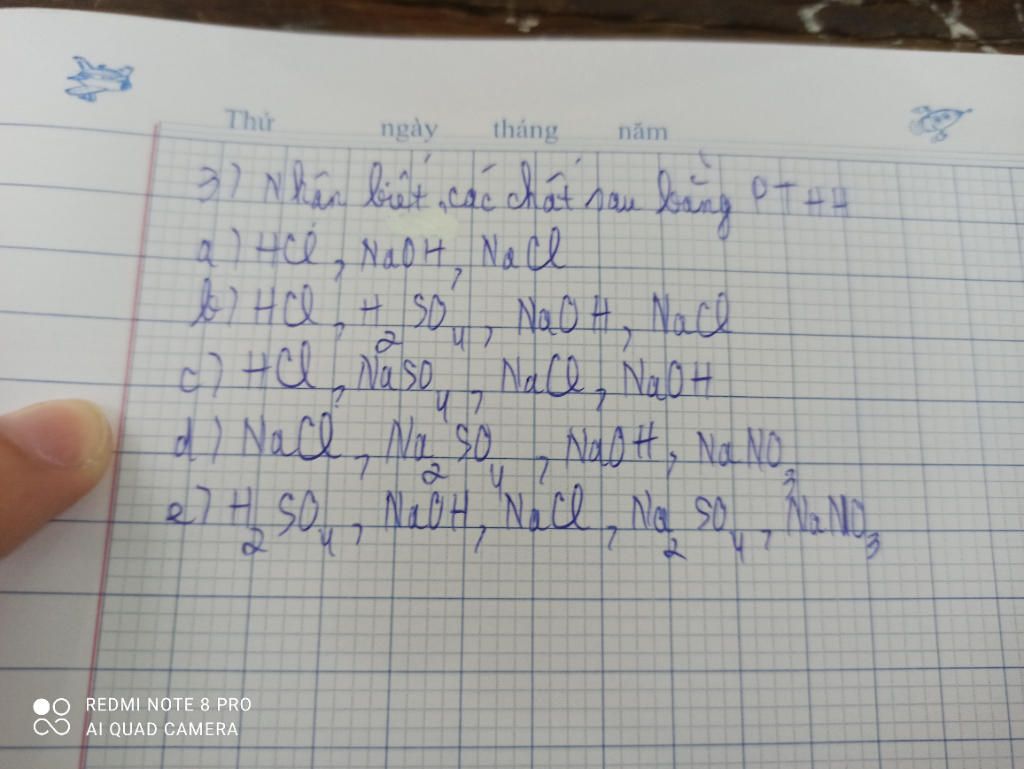 Thứ ngày tháng năm
3) Nhận biết các chất sau bằng PTHH
a) HCl, NaOH, NaCl
b) HCl, H2SO4, NaOH, NaCl
c) HCl, NaSO4, NaCl, NaOH
d) NaCl, Na2SO4, NaOH, NaNO3
e) H2SO4, NaOH, NaCl, Na2SO4, NaNO3
REDMI NOTE 8 PRO
AI QUAD CAMERA